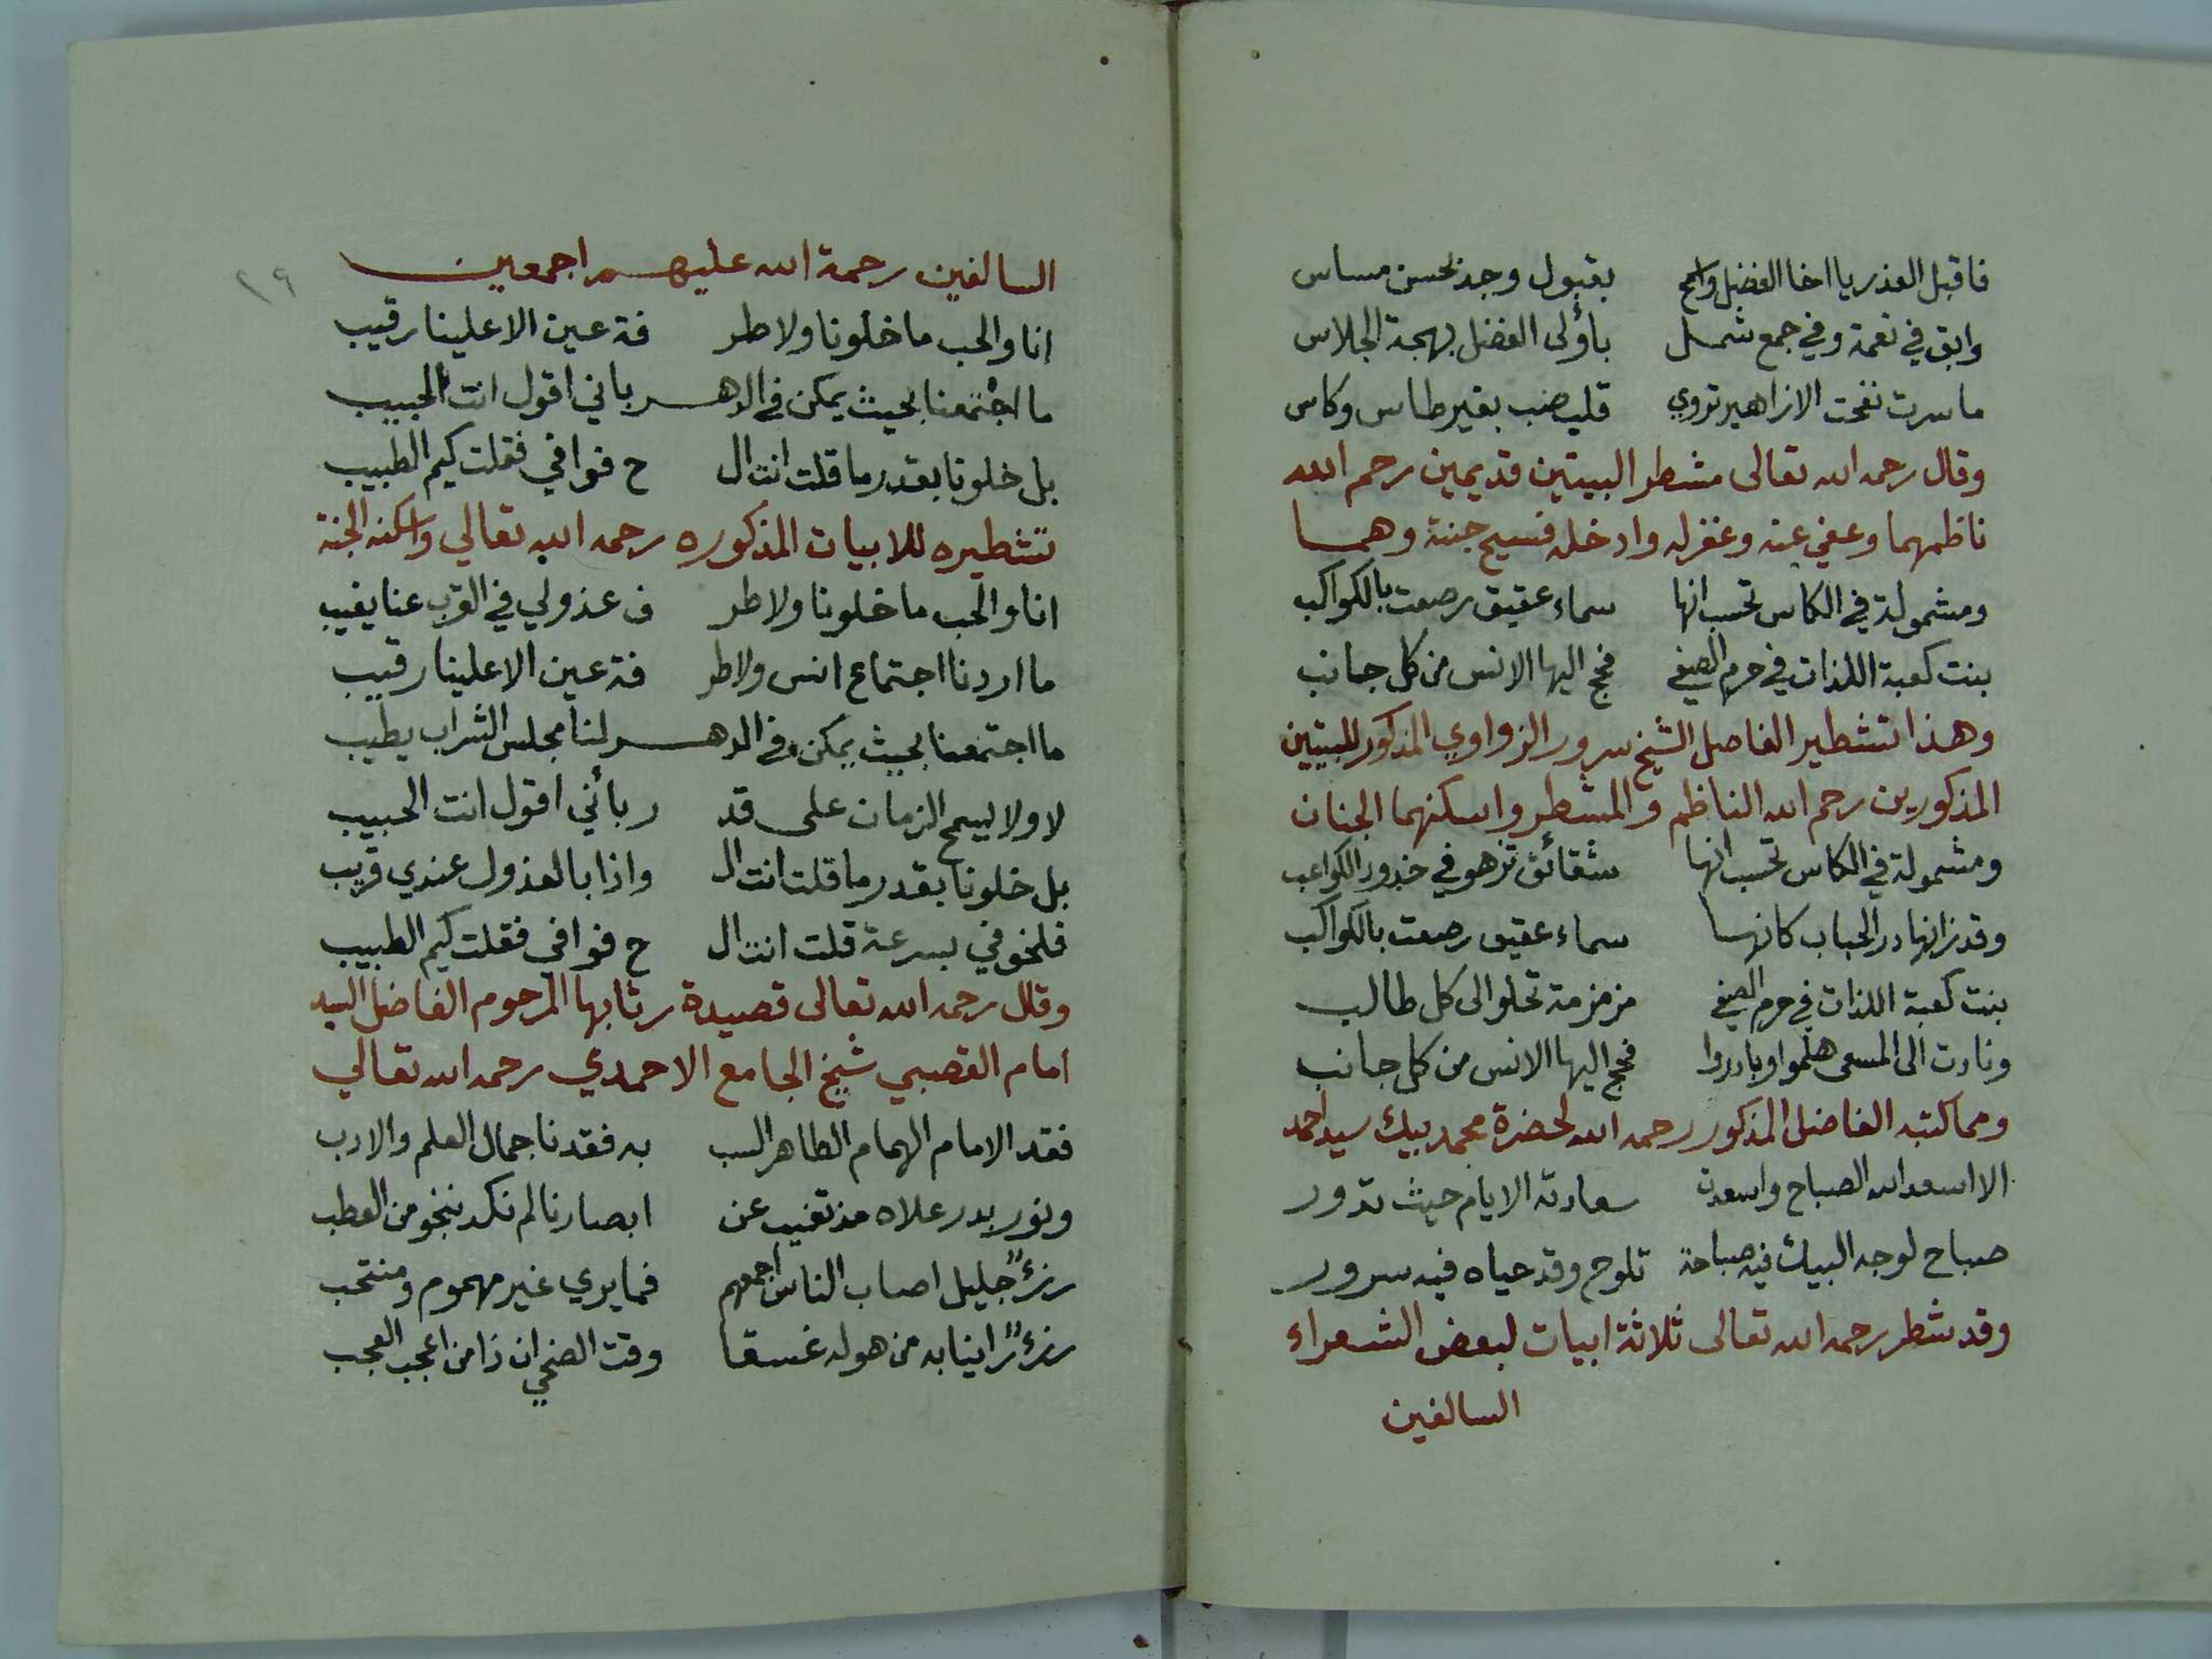 فاقبل العذر يا اخا الفضل واسمح بقبول وجد بحسن مساس
وابق في نعمة وفي جمع شمل باولى الفضل بهجة الجلاس
ما سرت نفحت الازاهير تروي قلب صب بغير طاس وكاس
وقال رحمه الله تعالى مشطر البيتين قديمين رحم الله
ناظمهما وعفي عنه وغفر له وادخله فسيح جنته وهما
ومشمولة في الكاس تحسب انها سماء عقيق رصعت بالكواكب
بنت كعبة اللذات في حرم الصفي فحج اليها الانس من كل جانب
وهذا تشطير الفاضل الشيخ سرور الزواوي المذكور للبيتين
المذكورين رحم الله الناظم والمشطر واسكنهما الجنان
ومشمولة في الكاس تحسب انها شقائق تزهو في خدور الكواعب
وقد زانها در الحباب كانها سماء عقيق رصعت بالكواكب
بنت كعبة اللذات في حرم الصفي مزمزمة تحلو الى كل طالب
ونادت الى المسعى هلموا وبادروا فحج اليها الانس من كل جانب
ومما كتبه الفاضل المذكور رحمه الله لحضرة محمد بيك سيد احمد
الا اسعد الله الصباح واسعدت سعادته الايام حيث تدور
صباح لوجه البيك فيه صباحة تلوح وقد حياه فيه سرور
وقد شطر رحمه الله تعالى ثلاثة ابيات لبعض الشعراء
السالفين
٢٩
السالفين رحمة الله عليهم اجمعين
انا والحب ما خلونا ولا طر فة عين الا علينا رقيب
ما اجتمعنا بحيث يمكن في الدهـ ـر باني اقول انت الحبيب
بل خلونا بقدر ما قلت انت ال ح فوافي فقلت كيم الطبيب
تشطيره للابيات المذكوره رحمه الله تعالي واسكنه الجنة
انا والحب ما خلونا ولا طر ف عذولي في القرب عنا يغيب
ما اردنا اجتماع انس ولا طر فة عين الا علينا رقيب
ما اجتمعنا بحيث يمكن في الدهـ ـر لنا مجلس الشراب يطيب
لا ولا ليسمح الزمان على قد ر بأني اقول انت الحبيب
بل خلونا بقدر ما قلت انت ال واذا بالعذول عندي قريب
فلخوفي بسرعة قلت انت ال ح فوافي فقلت كيم الطبيب
وقال رحمه الله تعالى قصيدة رثا بها المرحوم الفاضل السيد
امام القصبي شيخ الجامع الاحمدي رحمه الله تعالي
فقد الامام الهمام الطاهر النسب به فقدنا جمال العلم والادب
ونور بدر علاه مذ تغيب عن ابصارنا لم نكد ننجو من العطب
رزء جليل اصاب الناس اجمعهم فما يري غير مهموم ومنتحب
رزء راينا به من هوله غسقا وقت الضحي ان ذا من اعجب العجب